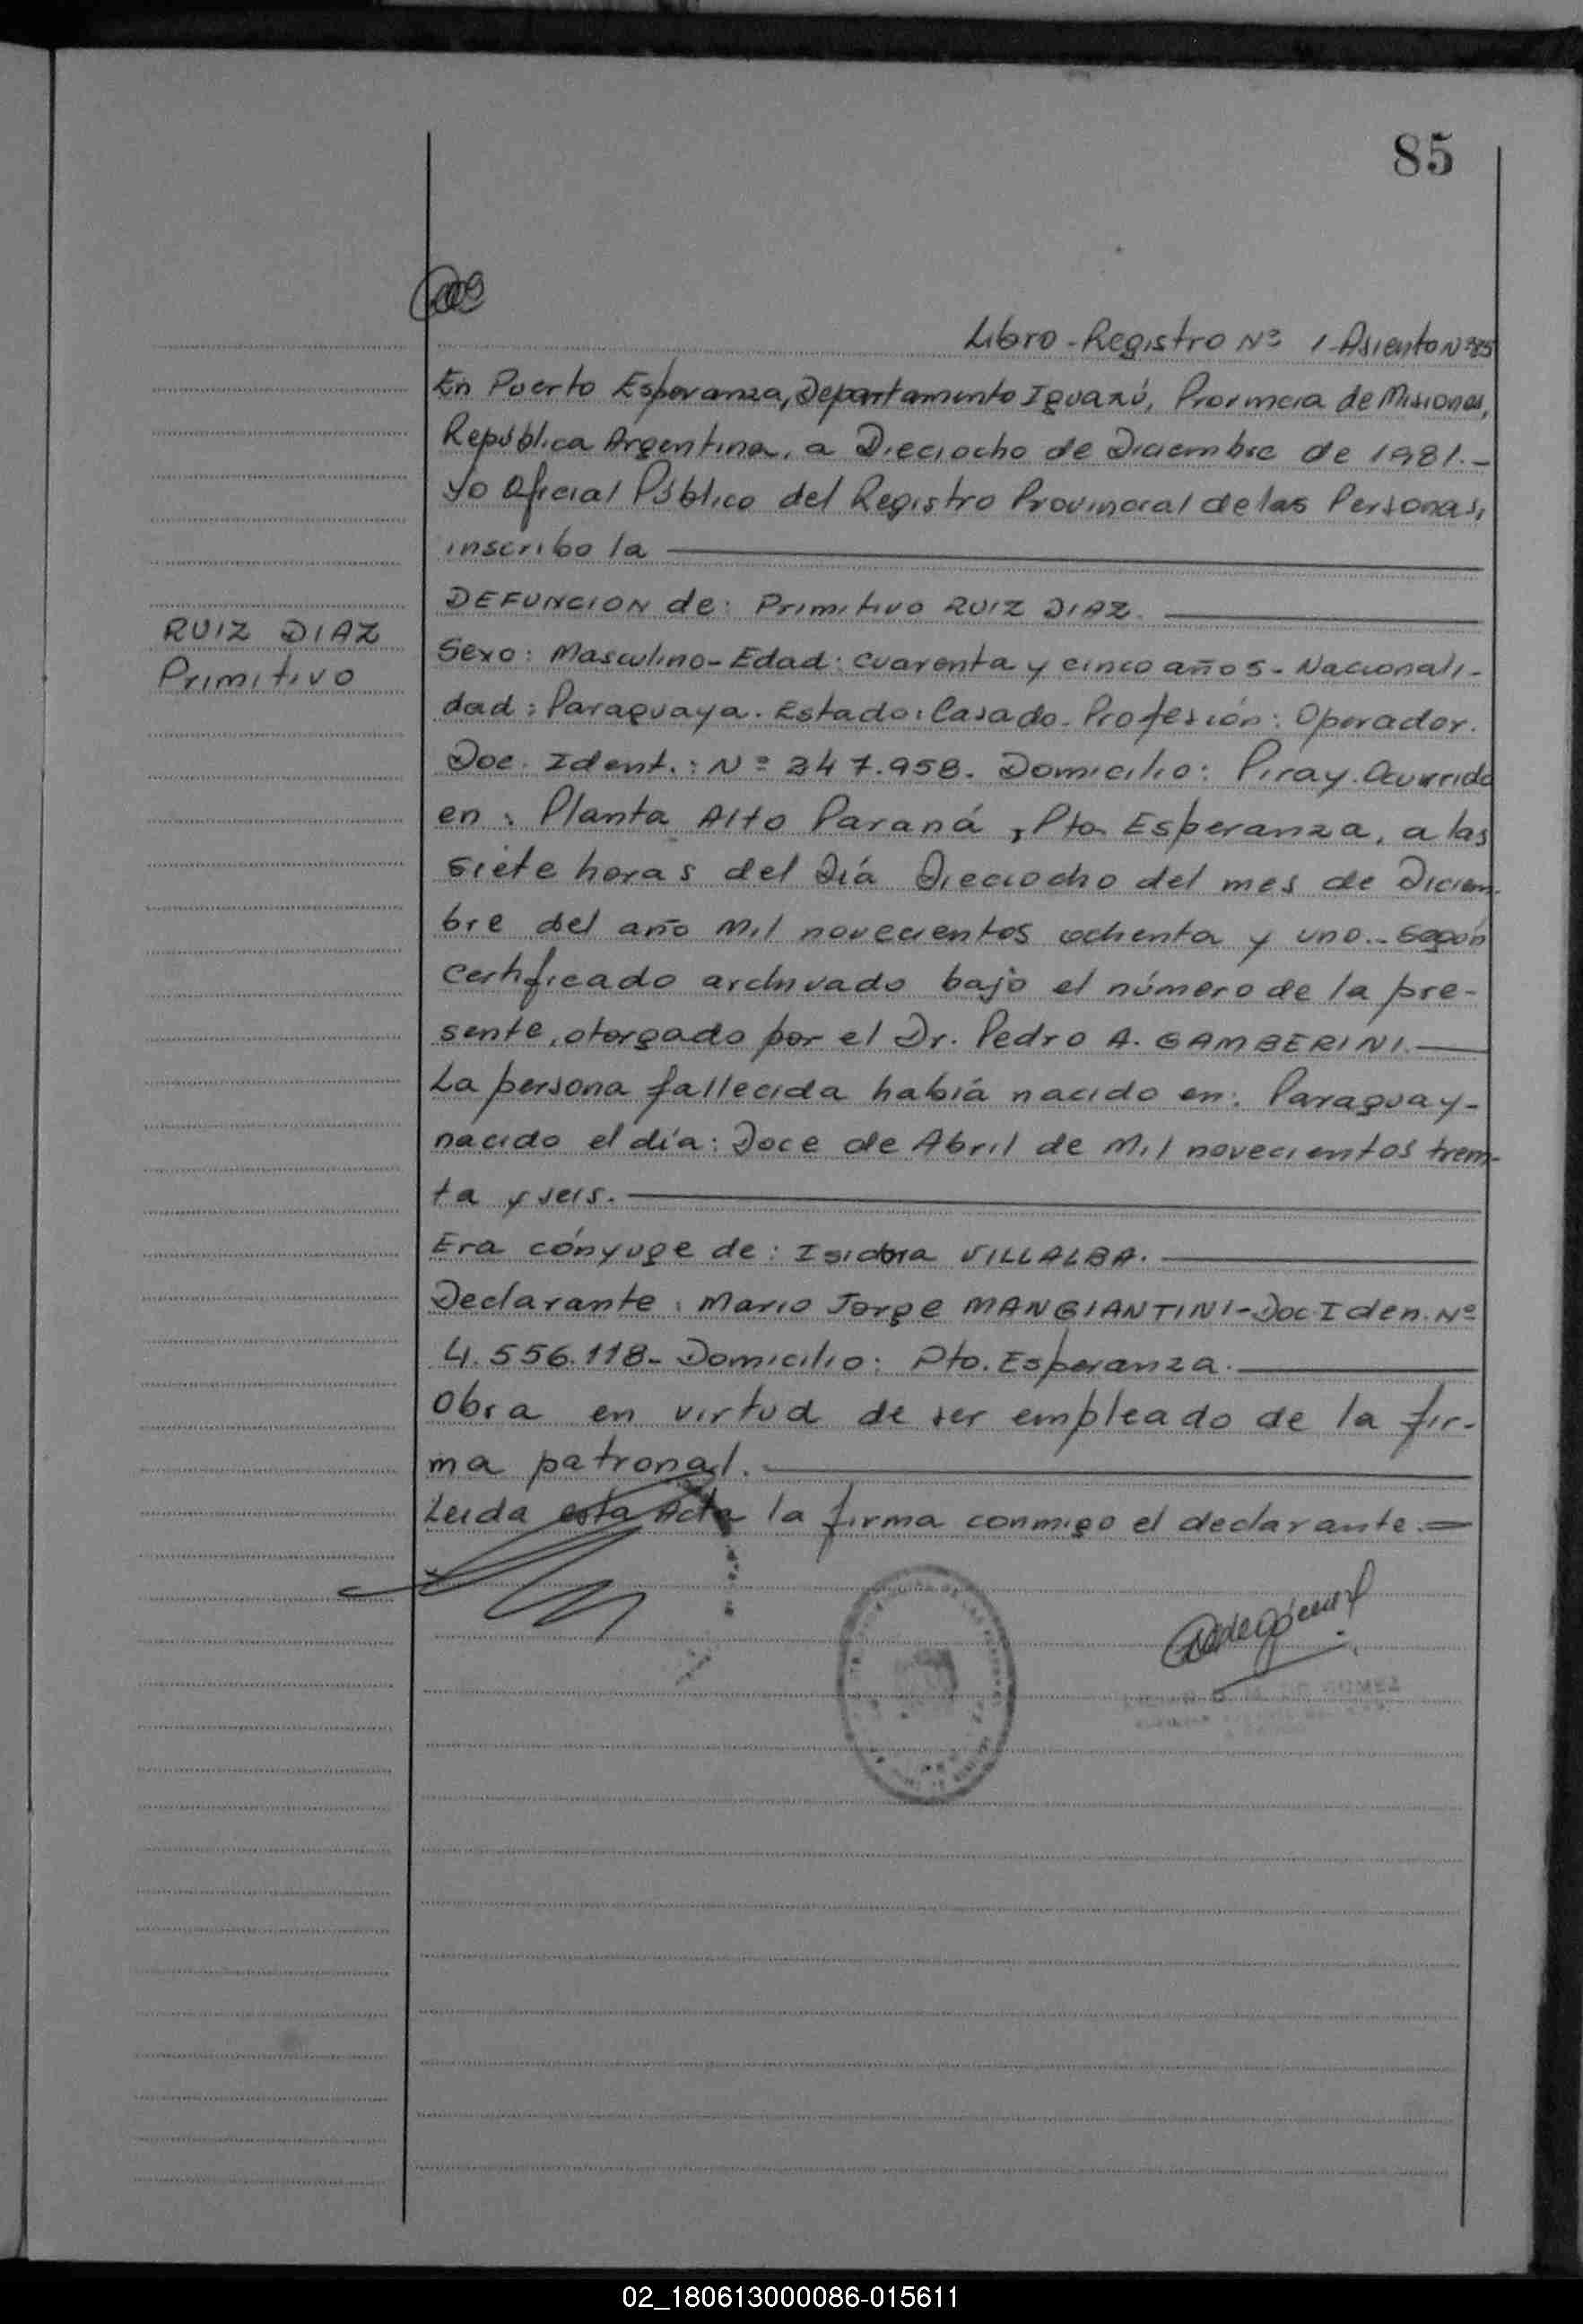 85
Libro-Registro Nº 1-Asiento Nº85
En Puerto Esperanza, Departamento Iguazú, Provincia de Misiones,
República Argentina, a Dieciocho de Diciembre de 1981.-
yo Oficial Público del Registro Provincial de las Personas,
inscribo la
DEFUNCION de: Primitivo RUIZ DIAZ.
RUIZ DIAZ
Primitivo
Sexo: Masculino- Edad: cuarenta y cinco años- Nacionali-
dad: Paraguaya. Estado: Casado. Profesión: Operador.
Doc. Ident.: Nº 347.958. Domicilio: Piray. Ocurrido
en: Planta Alto Paraná, Pto. Esperanza, a las
siete horas del Día Dieciocho del mes de Diciem-
bre del año Mil novecientos ochenta y uno.- Según
certificado archivado bajo el número de la pre-
sente, otorgado por el Dr. Pedro A. GAMBERINI.
La persona fallecida había nacido en: Paraguay-
nacido el día: Doce de Abril de Mil novecientos trein-
ta y seis.
Era cónyuge de: Isidora VILLALBA.
Declarante: Mario Jorge MANGIANTINI- Doc. Iden. Nº
4.556.118- Domicilio: Pto. Esperanza.
Obra en virtud de ser empleado de la fir-
ma patronal.
Leida esta Acta la firma conmigo el declarante.=
DE GOMEZ
02_180613000086-015611